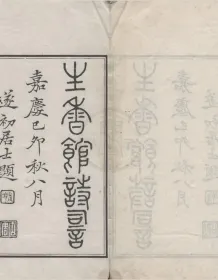 生香館詩二言
嘉慶己卯秋八月
遂初居士題